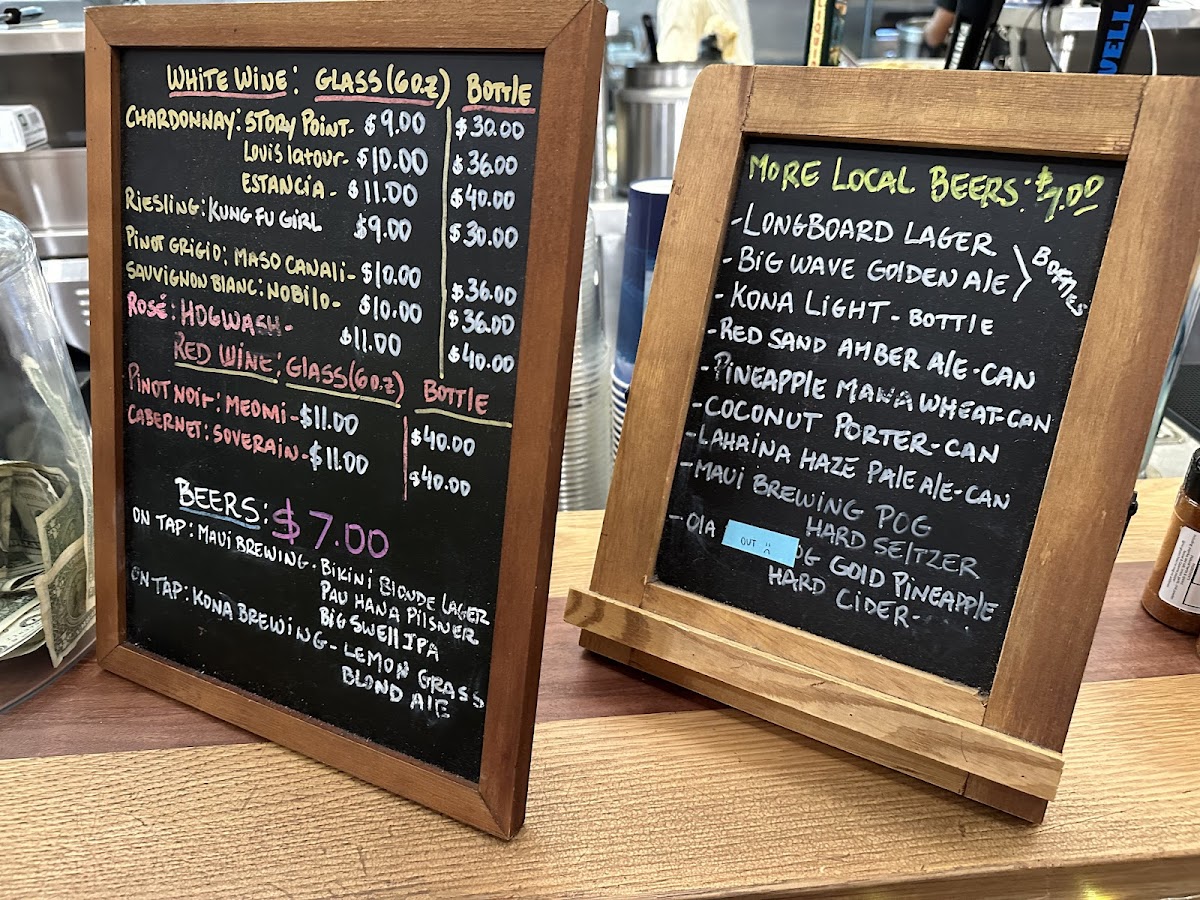 WHITE WINE: GLASS (6 O.Z) BOTTLE
CHARDONNAY: STORY POINT- $9.00 $30.00
LOUIS LATOUR- $10.00 $36.00
ESTANCIA - $11.00 $40.00
RIESLING: KUNG FU GIRL $9.00 $30.00
PINOT GRIGIO: MASO CANALI- $10.00 $36.00
SAUVIGNON BLANC: NOBILO- $10.00 $36.00
ROSÉ: HOGWASH- $11.00 $40.00
RED WINE: GLASS (6 O.Z) BOTTLE
PINOT NOIR: MEOMI - $11.00 $40.00
CABERNET: SOVERAIN - $11.00 $40.00
BEERS: $7.00
ON TAP: MAUI BREWING - BIKINI BLONDE LAGER
PAU HANA PILSNER
BIG SWELL IPA
ON TAP: KONA BREWING - LEMON GRASS
BLOND ALE
MORE LOCAL BEERS: $7.00
- LONGBOARD LAGER
- BIG WAVE GOLDEN ALE
BOTTLES
- KONA LIGHT - BOTTLE
- RED SAND AMBER ALE - CAN
- PINEAPPLE MANA WHEAT - CAN
- COCONUT PORTER - CAN
- LAHAINA HAZE PALE ALE - CAN
- MAUI BREWING POG
HARD SELTZER
- OLA OUT GOLD PINEAPPLE
HARD CIDER -
WELL